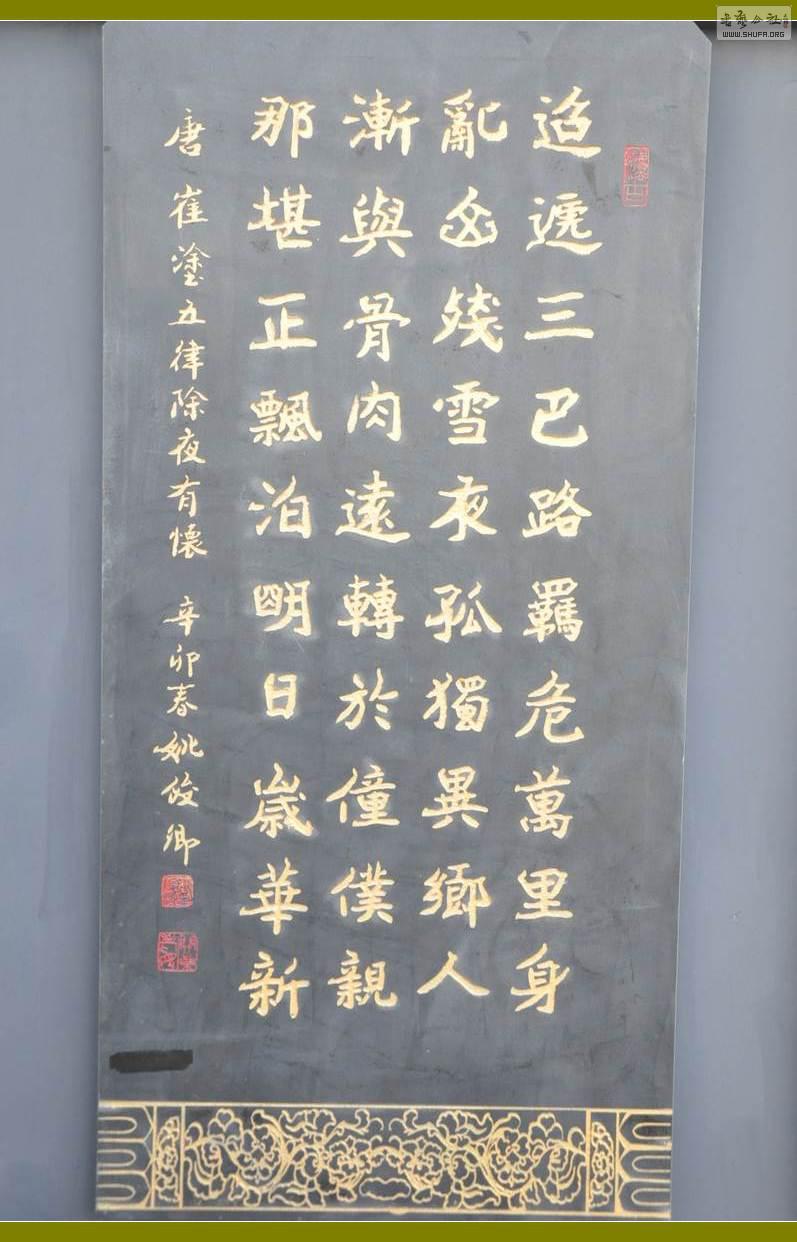 迨遞三巴路羈危萬里身
亂山殘雪夜孤獨異鄉人
漸與骨肉遠轉於僮僕親
那堪正飄泊明日歲華新
唐崔塗五律除夜有懷 辛卯春姚俊卿
WWW.SHUFA.ORG